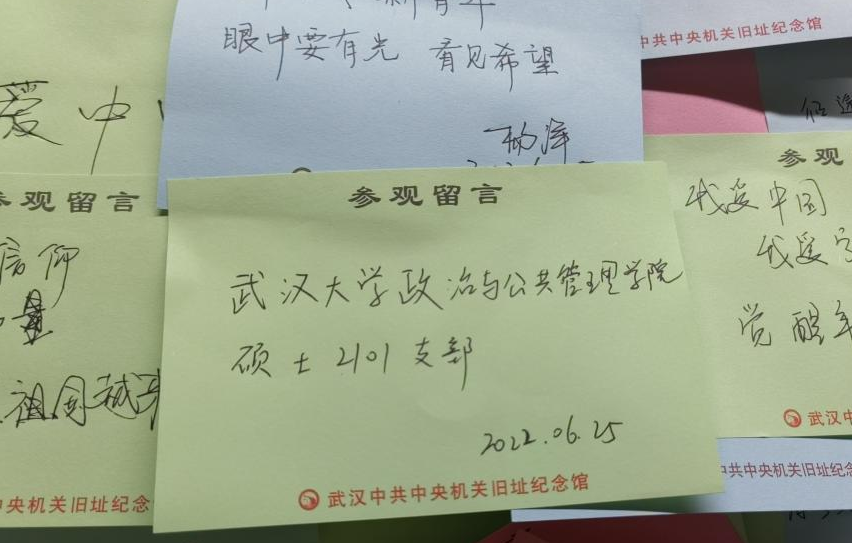 新青年
眼中要有光 看见希望
杨洋
中共中央机关旧址纪念馆
爱中
参观留言
信仰
祖国越来
中央机关旧址纪念
参观留言
武汉大学政治与公共管理学院
硕士2101支部
2022.06.25
武汉中共中央机关旧址纪念馆
参观
我爱中国
我爱
觉醒年
武汉中
中共中央机关旧址纪念馆